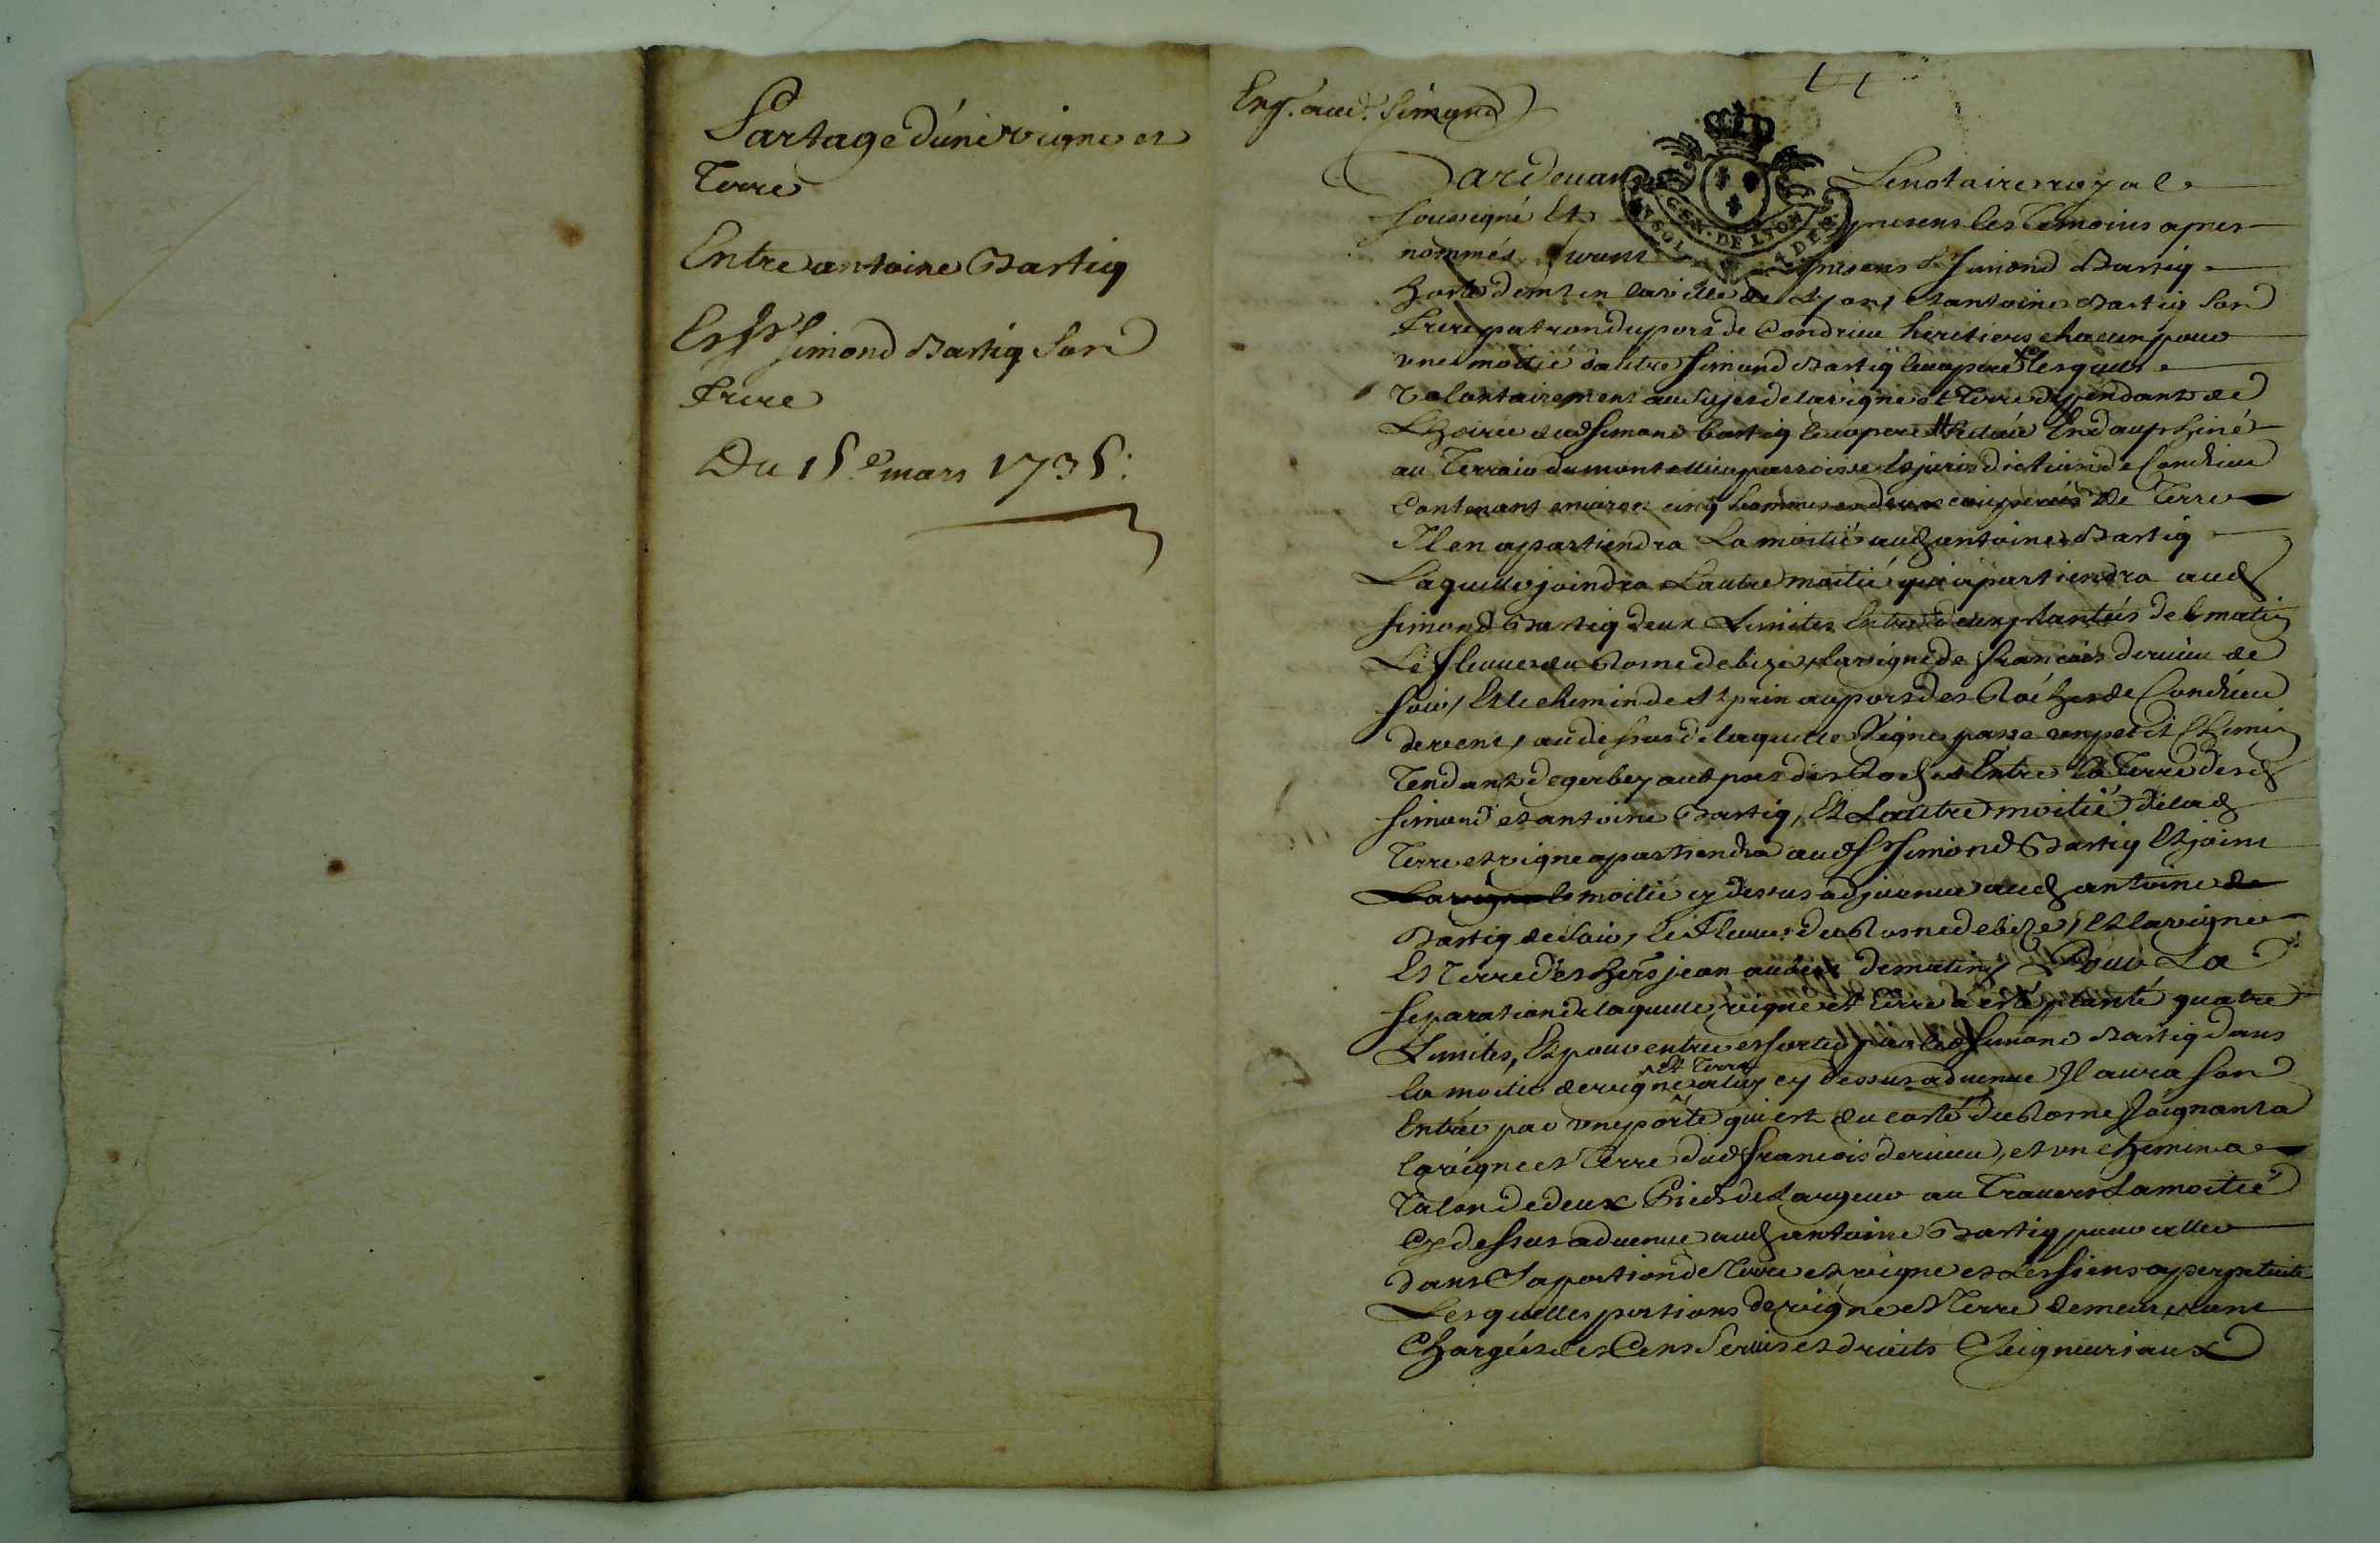 Partage d'une vigne et
Terre
Entre antoine Bastig
Et Sr Simond Bastig Son
Frere
Du 15e mars 1735:
Exp. aud. Simond
Pardevant Le notaire royal
soussigné Et presens les Temoins apres
nommés furent presens Sr Simond Bastig
demt en la ville de Lyon, et antoine Bastig Son
Frere patron du port de Condrieu heritiers chacun pour
une moitié d'autre Simond Bastig leur pere lesquels
volontairement au sujet de la vigne et Terre dependante de
L'hoirie dud Simond bastig leur pere située En dauphiné
au Terroir du mont parroisse et jurisdiction de Condrieu
Contenant environ cinq hommes de Terre
Il en apartiendra La moitié aud antoine Bastig
Laquelle joindra L'autre moitié qui apartiendra aud
Simond Bastig deux Limites Entre deux plantées de matin
Le fleuve du Rosne de bize, la vigne de francois derieu de
soir, Et le chemin de St prin au port des Roches de Condrieu
de vent, au dessus de laquelle vigne passe un petit Chemin
Tendant de gerbey aud port des Roches Entre la Terre desd
Simond et antoine Bastig, Et L'autre moitié de lad
Terre et vigne apartiendra aud Sr Simond Bastig Et joint
La vigne la moitié cy dessus advenue aud antoine de
Bastig de soir, le Fleuve du Rosne de bize, Et la vigne
Et Terre des hers jean de matin, Pour La
separation de laquelle vigne et terre a esté planté quatre
Limites, Et pour entrer et sortir par led Simond Bastig dans
la moitié de vigne et Terre a luy cy dessus advenue Il aura son
Entrée par une porte qui est du costé du Rosne Joignant a
la vigne et Terre dud francois derieu, et un chemin a
Talon de deux Pieds de Largeur au Travers La moitié
Cy dessus advenue aud antoine Bastig pour aller
dans Sa portion de Terre et vigne et Les siens a perpetuité
Lesquelles portions de vigne et Terre demeureront
Chargées des Cens Servis et droits Seigneuriaux
GEN. DE LYON